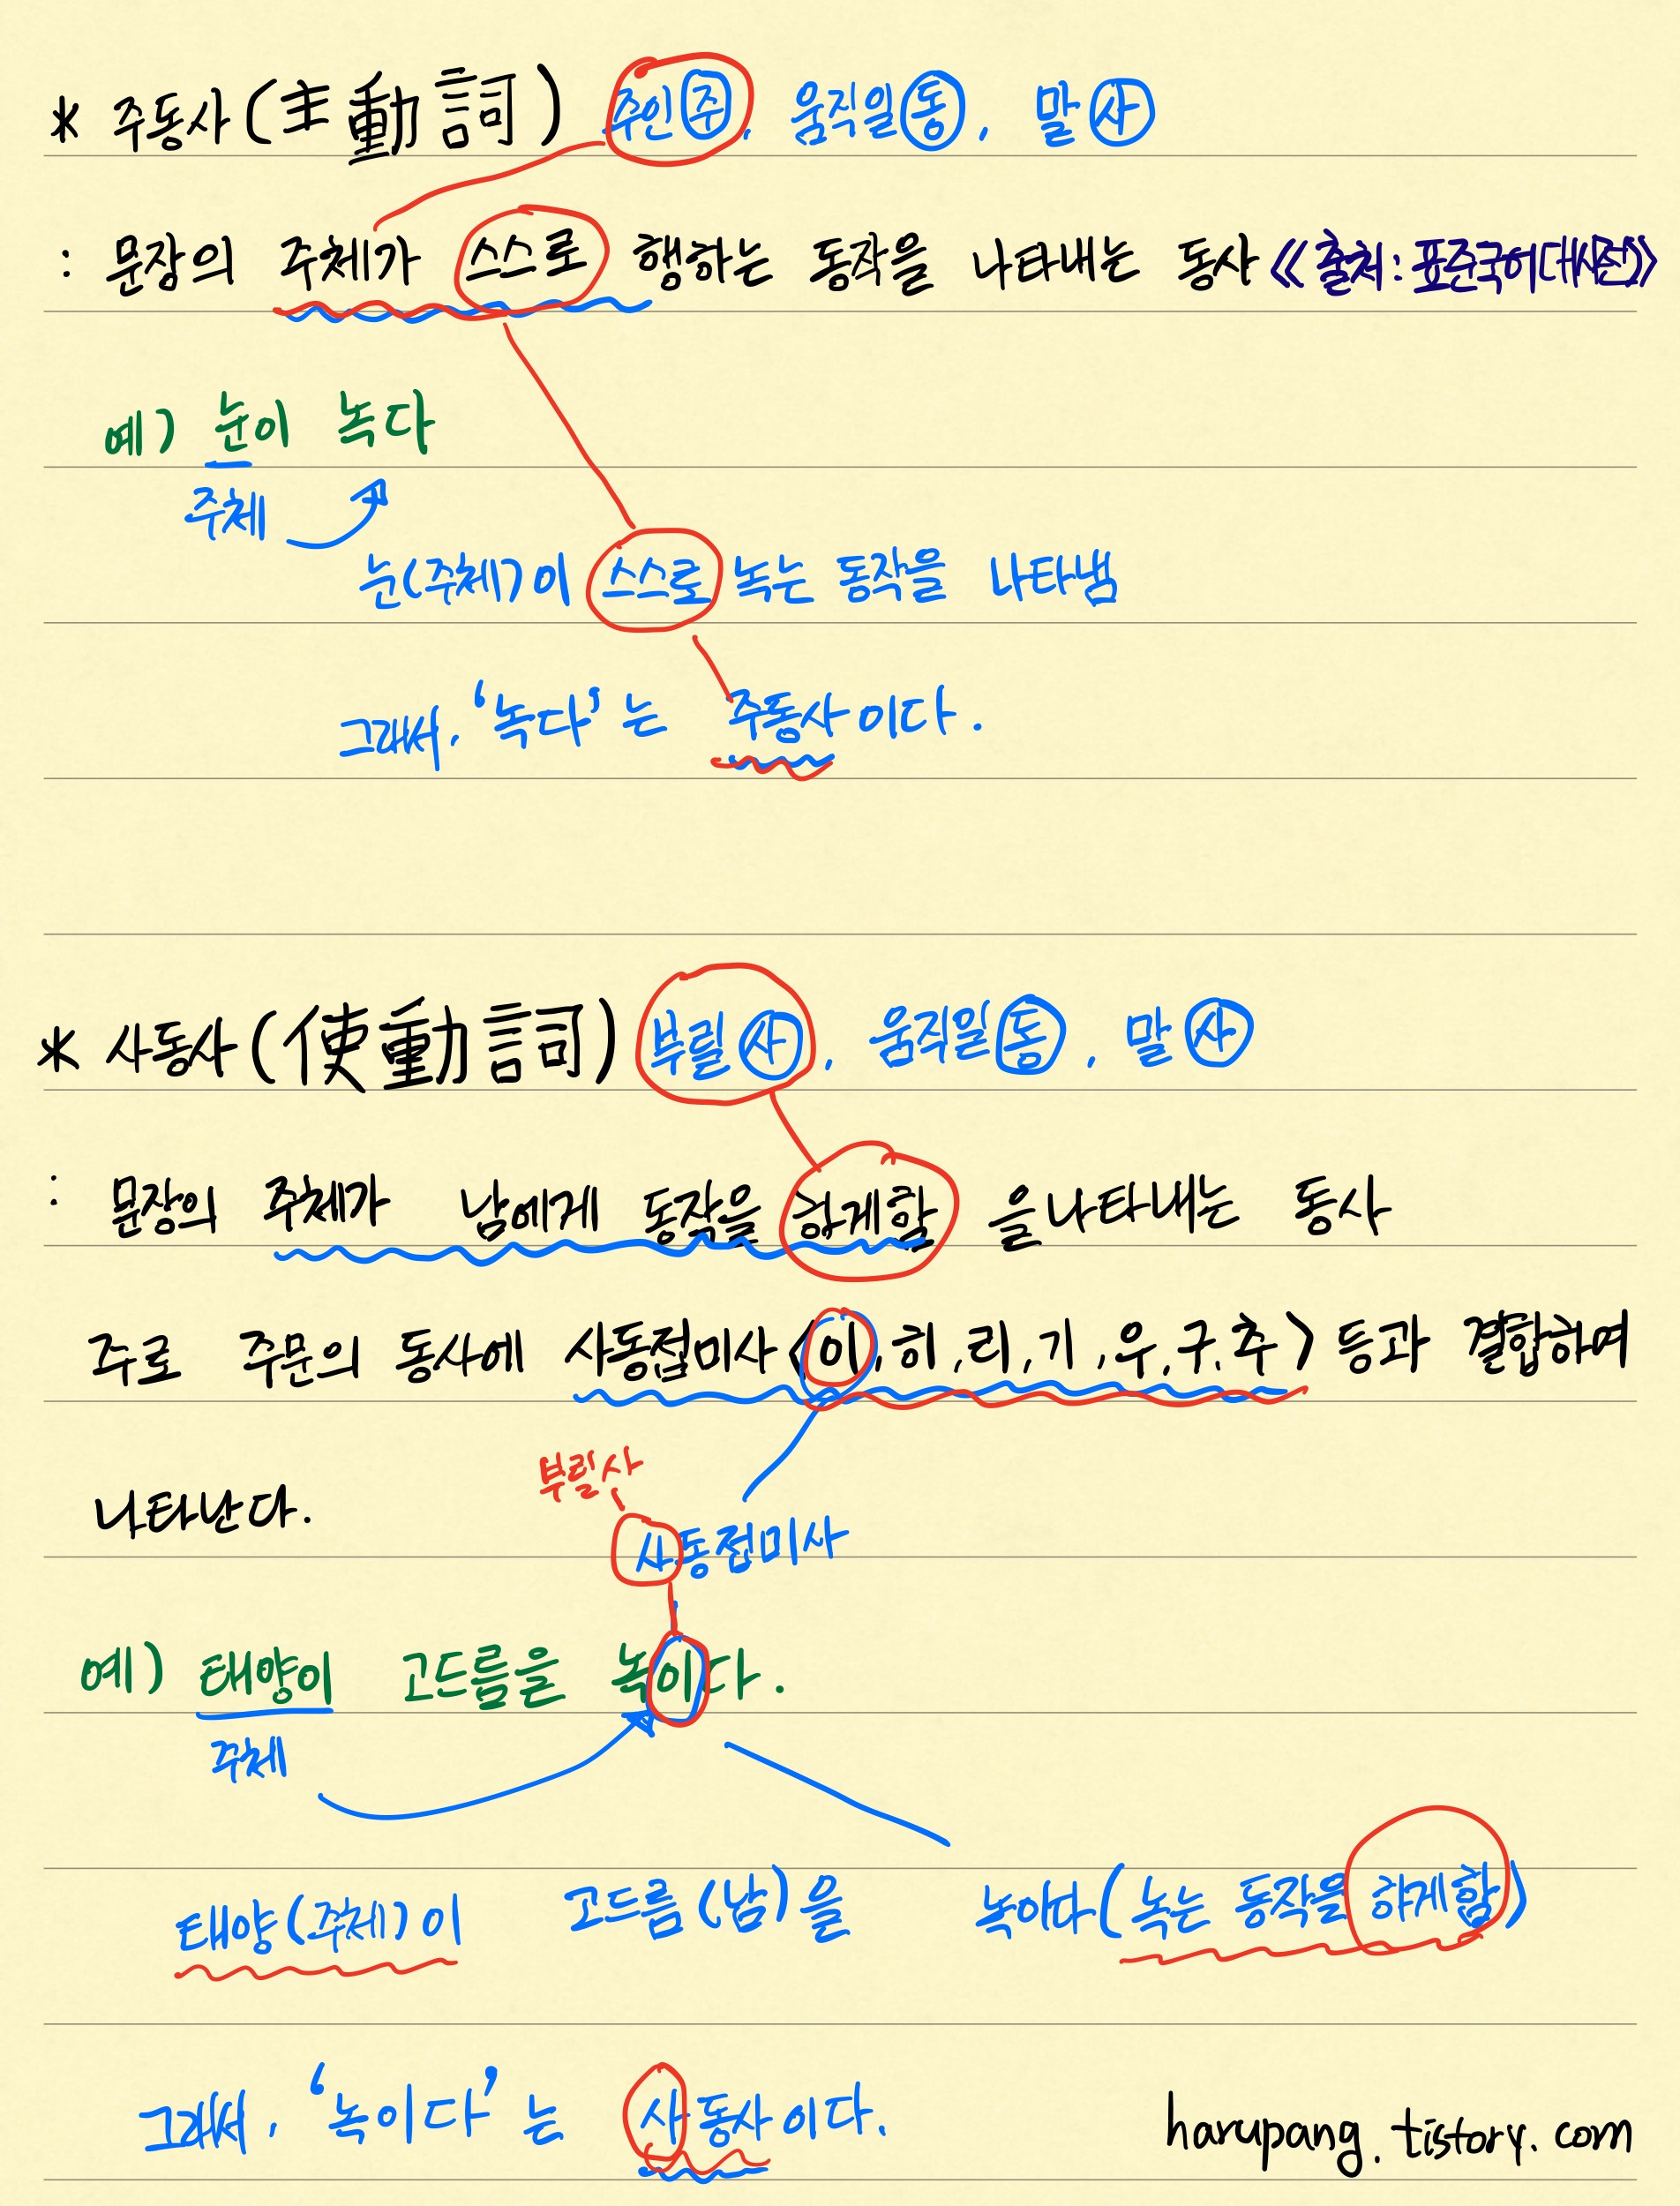 * 주동사(主動詞) 주인 주, 움직일 동, 말 사
: 문장의 주체가 스스로 행하는 동작을 나타내는 동사 《출처: 표준국어대사전》
예) 눈이 녹다
주체
눈(주체)이 스스로 녹는 동작을 나타냄
그래서, '녹다'는 주동사이다.
* 사동사(使動詞) 부릴 사, 움직일 동, 말 사
: 문장의 주체가 남에게 동작을 하게함 을나타내는 동사
주로 주문의 동사에 사동접미사 <이, 히, 리, 기, 우, 구, 추> 등과 결합하여
부릴사
나타난다.
사동접미사
예) 태양이 고드름을 녹이다.
주체
태양(주체)이 고드름(남)을 녹이다(녹는 동작을 하게함)
그래서, '녹이다'는 사동사이다.
harupang.tistory.com